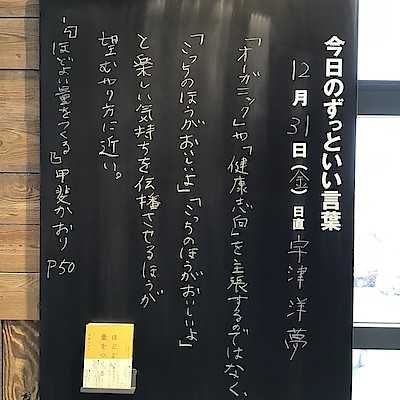 今日のずっといい言葉
12月31日(金)日直 宇津洋夢
「オーガニック」や「健康志向」を主張するのではなく、
「こっちのほうがおいしいよ」「こっちのほうがおいしいよ」
と楽しい気持ちを伝播させるほうが
望むやり方に近い。
『ほどよい量をつくる』甲斐かおり P50
ほどよい
量をつくる